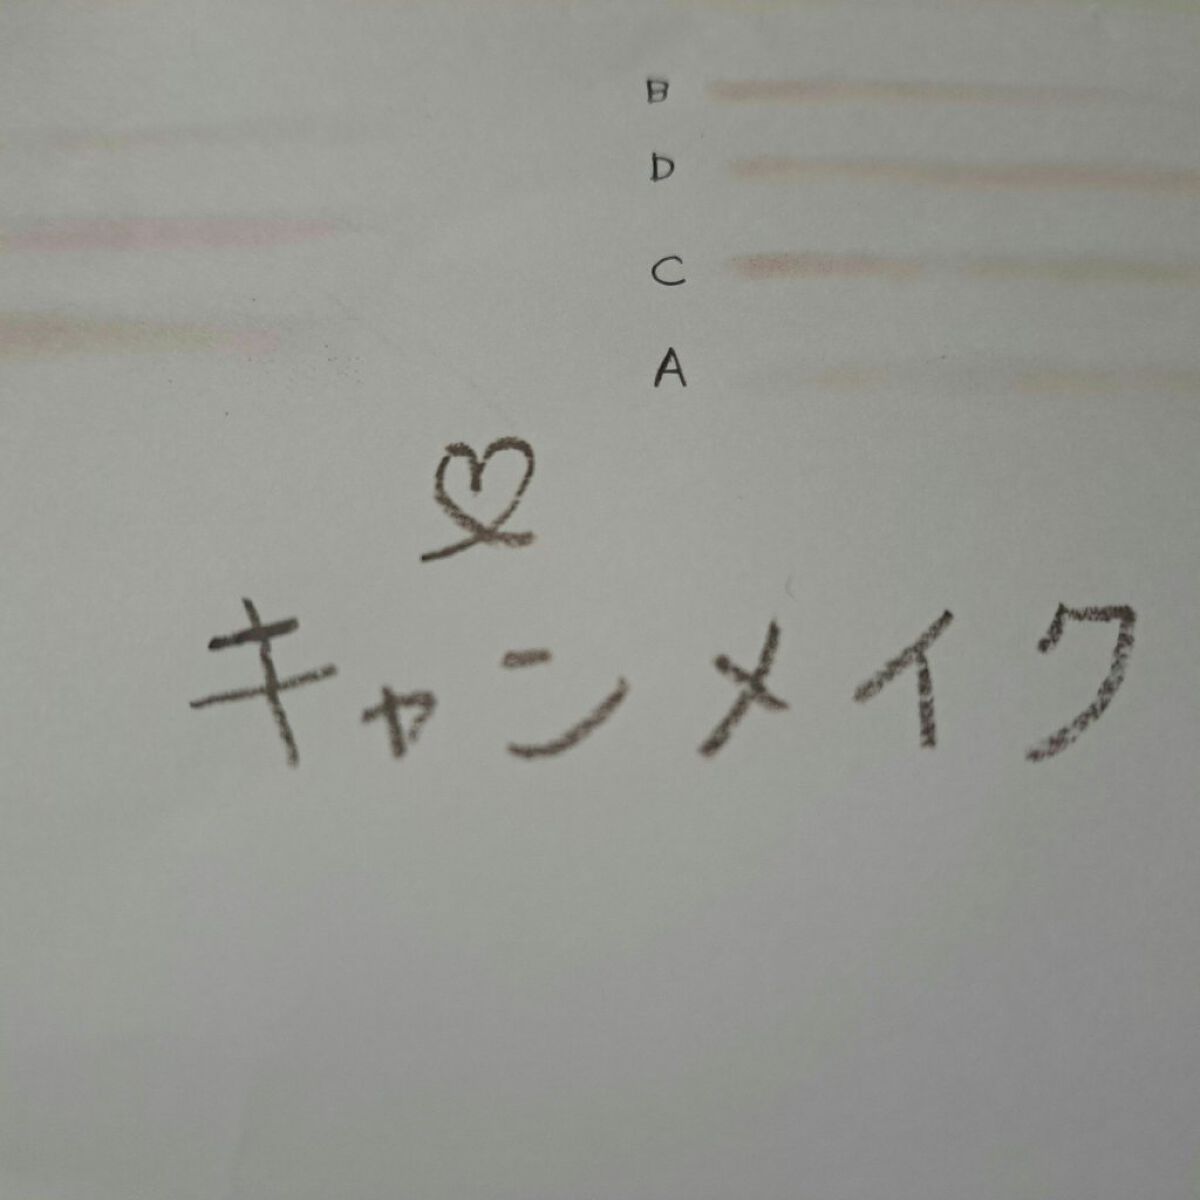 B
D
C
A
キャンメイク